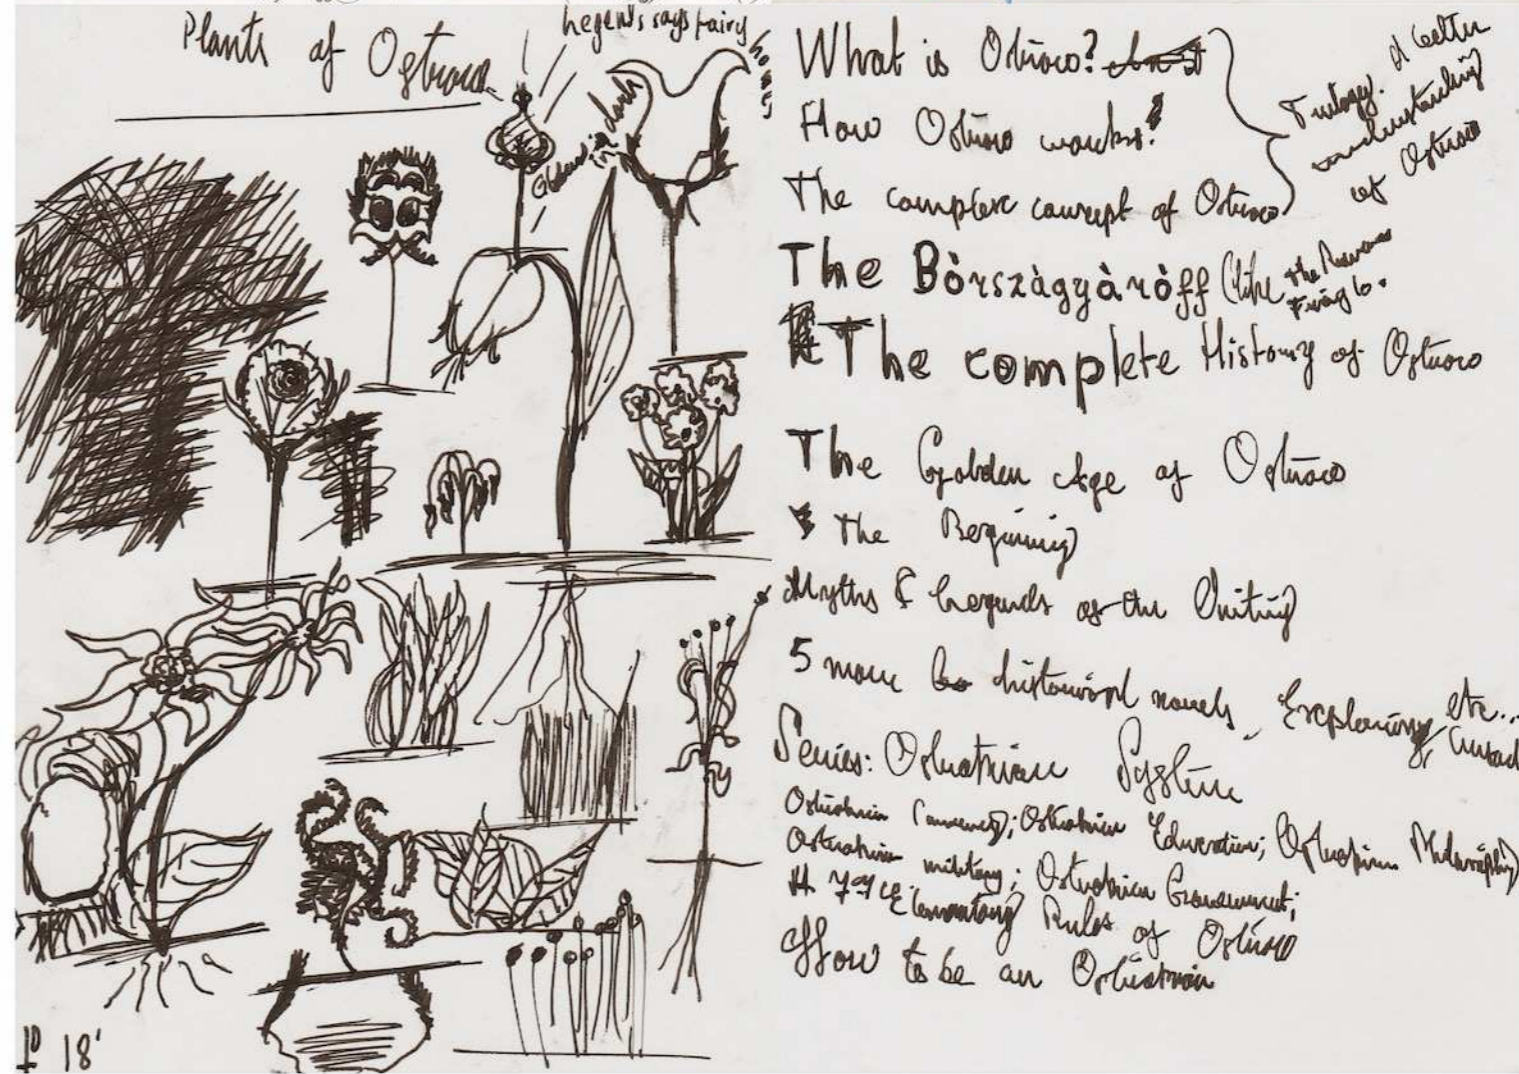 Plants of Ostraco
Legends says fairy
houses
Glows in dark
What is Ostraco?
How Ostraco works?
The complex concept of Ostraco
Trilogy. A better
understanding
of Ostraco
The Bòrszàgyàròff (like the
The complete History of Ostraco
The Golden Age of Ostraco
The Begining
Myths & Legends of the
5 more historical novels, Explaining, etc...
Series: Ostratrian System
Ostratrian Currency; Ostratrian Education; Ostratrian
Ostratrian military; Ostratrian Government;
Elementary Rules of Ostraco
How to be an Ostratrian
18'